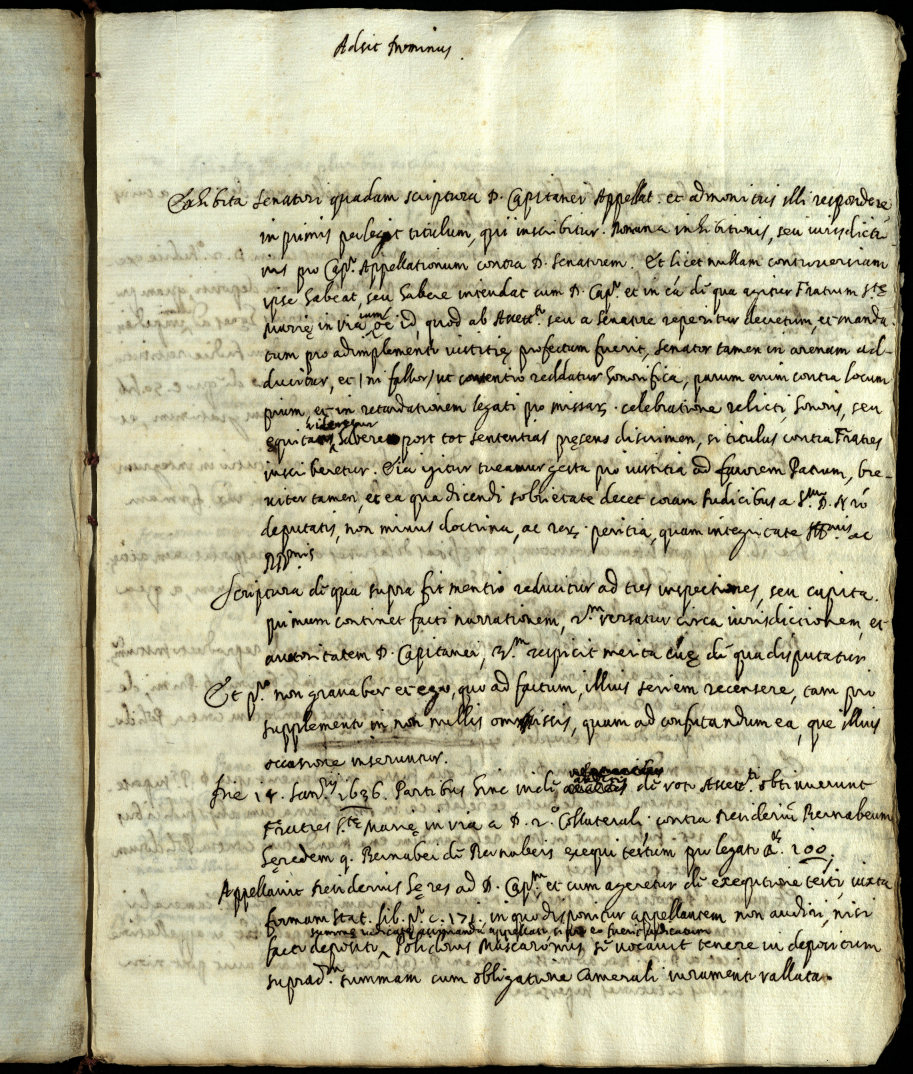 Adsit Dominus.
Exhibita Senatori quadam scriptura D. Capitanei Appellat. et admonitus illi respondere
in primis perlegit titulum, qui inscribitur. Romana inhibitionis, seu iurisdictio
nis pro Cap.º Appellationum contra D. Senatorem. Et licet nullam controversiam
ipse habeat, seu habere intendat cum D. Cap.º et in cã de qua agitur Fratrum S.tę
Marię in via, cum oẽ id, quod ab Assett.re seu a Senatore reperitur decretum, et manda
tum pro adimplemento iustitię profectum fuerit, Senator tamen in arenam ad-
ducitur, et / ni fallor / ut contentio reddatur honorifica, parum enim contra locum
pium, et in retardationem legati pro missar. celebratione relicti, honoris, seu
equitatis videretur habere post tot sententias pręsens discrimen, si titulus contra Fratres
inscriberetur. Sia igitur tueamur gesta pro iustitia ad favorem Patrum, bre-
viter tamen, et ea qua dicendi sobrietate decet coram Iudicibus a S.mo D. Nrõ
deputatis, non minus doctrina, ac rer. peritia, quam integritate Ill.mis ac
RR.mis
Scriptura de qua supra fit mentio reducitur ad tres inspectiones, seu capita.
primum continet facti narrationem, 2.m versatur circa iurisdictionem, et
auctoritatem D. Capitanei, 3.m respicit merita cãę de qua disputatur
Et p.º non gravabor et ego, quo ad factum, illius seriem recensere, tam pro
supplemento in non nullis omissis, quam ad confutandum ea, que illius
occasione inseruntur.
Die 14. Ianu.rij 1636. Partibus hinc inde auditis de voto Assett.ris obtinuerunt
Fratres S.tę Marię in via a D. 2.º Collaterali contra Bernabeum
hęredem q. Bernabei de Bernabeis exequi testum pro legato 100.
Appellavit hęres ad D. Cap.m et cum ageretur de exequutione testi, iuxta
formam Stat. lib. p.º c. 171. in quo disponitur appellantem non audiri, nisi
summę iudicatę
facto deposito, Polidorus Muscaronius, se vocavit tenere in depositum
suprad.m summam cum obligatione Camerali iuramento vallata.